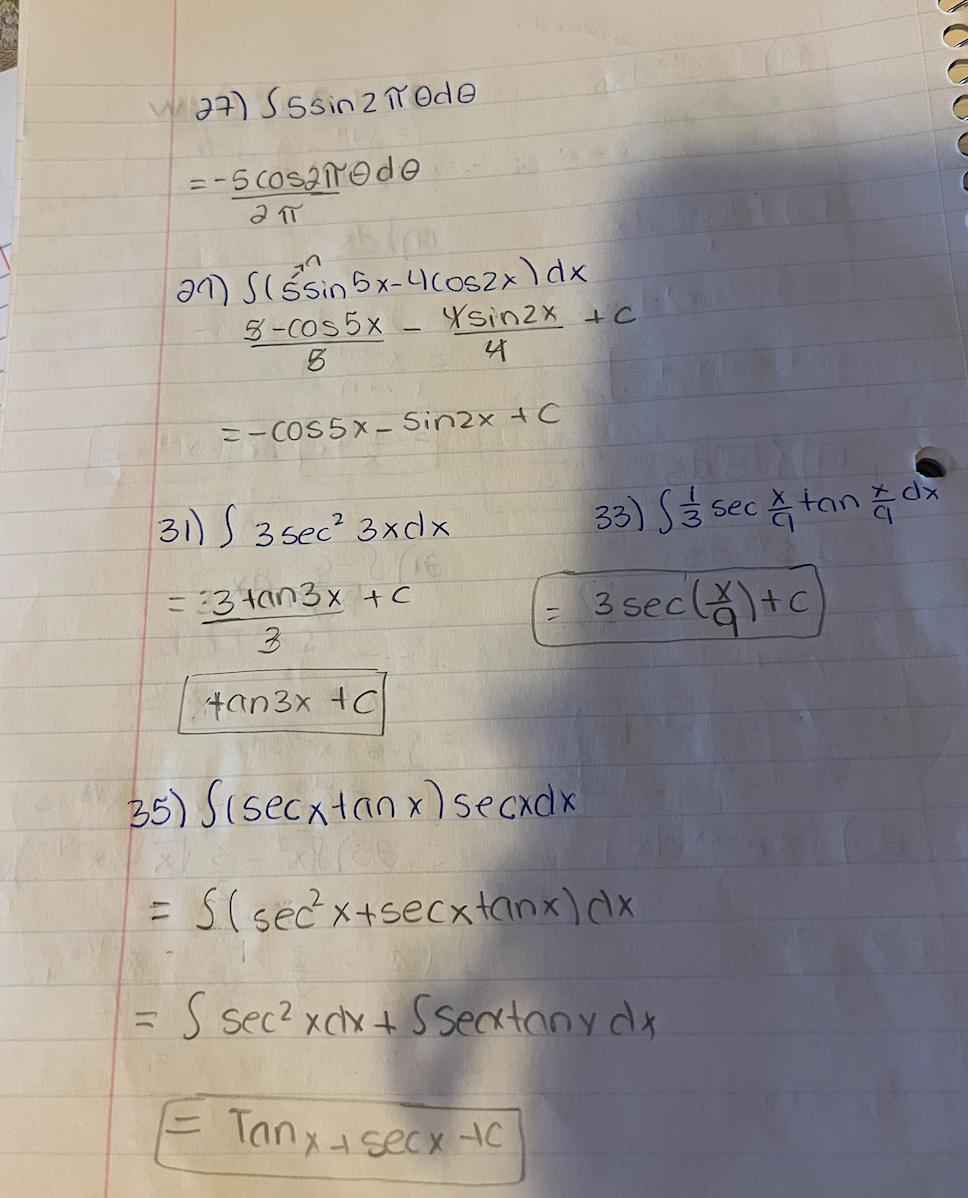 27) ∫ 5 sin 2 π θ d θ
= - 5 cos 2π θ d θ
2 π
29) ∫ ( 5 sin 5x - 4 cos 2x ) dx
5 - cos 5x - 4 sin 2x + C
5 4
= - cos 5x - sin 2x + C
31) ∫ 3 sec² 3x dx
= 3 tan 3x + C
3
tan 3x + C
33) ∫ 1/3 sec x/9 tan x/9 dx
= 3 sec (x/9) + C
35) ∫ (sec x tan x) sec x dx
= ∫ (sec² x + sec x tan x) dx
= ∫ sec² x dx + ∫ sec x tan x dx
= Tan x + sec x + C